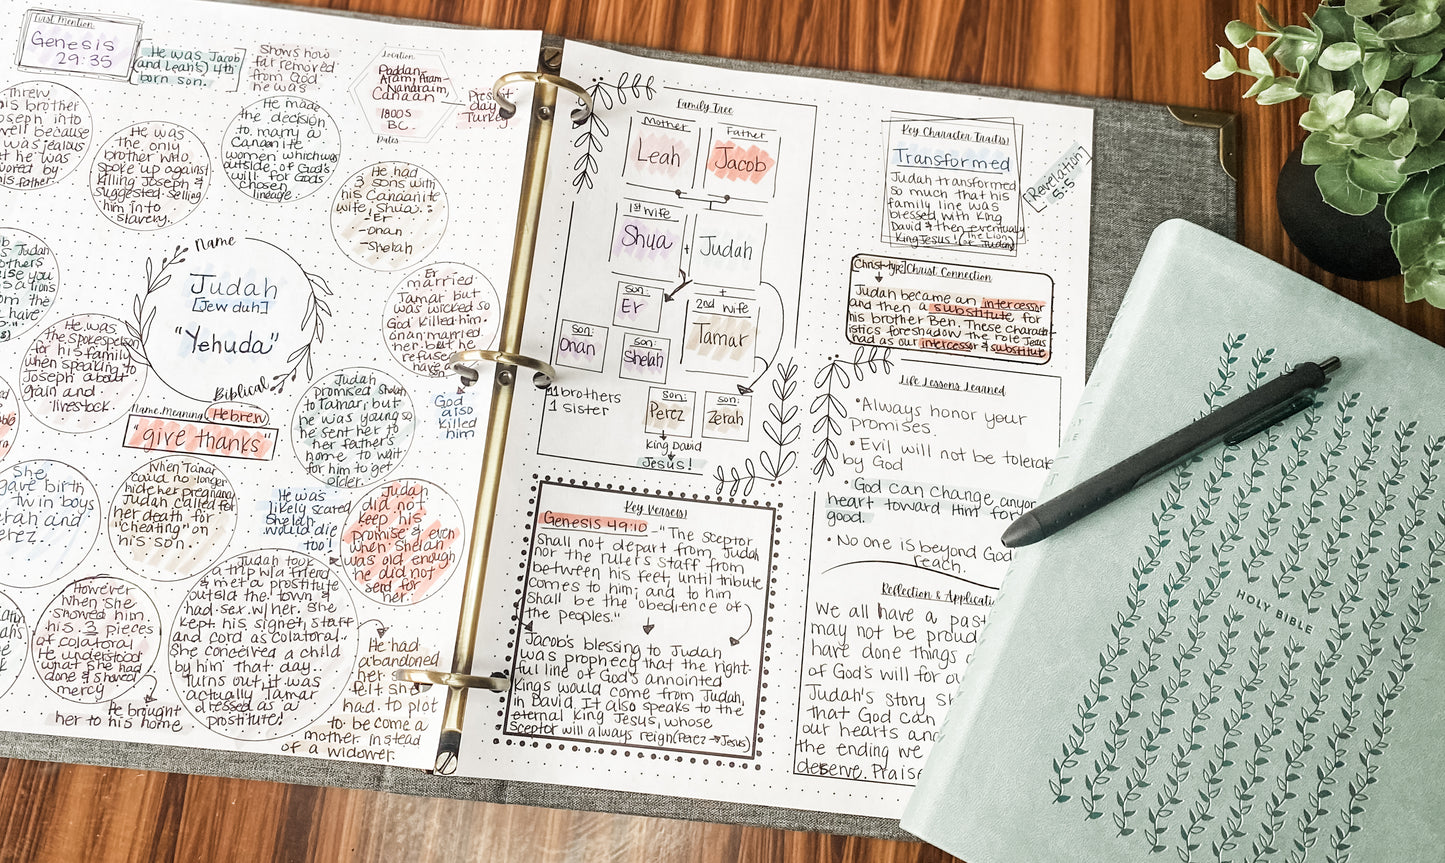 First Mention
Genesis
29:35
He was Jacob
(and Leah's) 4th
born son.
Shows how
far removed
from God
he was
Location
Paddan-
Aram, Aram-
Naharaim,
Canaan
1800s
BC
Dates
Present
day
Turkey
threw
his brother
Joseph into
well because
was jealous
he was
by
his father.
He was
the only
brother who
spoke up against
killing Joseph &
suggested selling
him into
slavery.
He made
the decision
to marry a
Canaanite
women which was
outside of God's
will for God's
chosen
lineage
He had
3 sons with
his Canaanite
wife, Shua..
-Er
-Onan
-Shelah
Judah
brothers
praise you
from the
have
Name
Judah
[Jew duh]
"Yehuda"
Biblical
Er
married
Tamar but
was wicked so
God killed him.
Onan married
her but he
refused
have a
God
also
killed
him
He was
the spokesperson
for his family
when speaking to
Joseph about
grain and
livestock.
Name Meaning Hebrew
"give thanks"
Judah
promised Shelah
to Tamar, but
he was young so
he sent her to
her father's
home to wait
for him to get
older.
She
gave birth
twin boys
Zerah and
Perez..
When Tamar
could no longer
hide her pregnancy
Judah called for
her death for
"cheating" on
his son..
He was
likely scared
Shelah
would die
too!
Judah
did not
keep his
promise & even
when Shelah
was old enough
he did not
send for
her.
However
when she
showed him
his 3 pieces
of colatoral
He understood
what she had
done & showed
mercy
He brought
her to his home
Judah took
a trip w/a friend
& met a prostitute
outside the town &
had sex w/ her. She
kept his signet, staff
and cord as colatoral..
She conceived a child
by him that day..
Turns out it was
actually Tamar
dressed as a
prostitute!
He had
abandoned
her
felt she
had to plot
to become a
mother instead
of a widower.
Family Tree
Mother
Leah
Father
Jacob
1st wife
Shua
+
Judah
+
2nd wife
Tamar
son:
Er
son:
Onan
son:
Shelah
11 brothers
1 sister
son:
Perez
son:
Zerah
King David
Jesus!
Key Verse(s)
Genesis 49:10 - "The sceptor
shall not depart from Judah
nor the ruler's staff from
between his feet, until tribute
comes to him; and to him
shall be the obedience of
the peoples."
Jacob's blessing to Judah
was prophecy that the right-
ful line of God's annointed
Kings would come from Judah,
in David. It also speaks to the
eternal King Jesus, whose
sceptor will always reign (Perez → Jesus)
Key Character Trait(s)
Transformed
Judah transformed
so much that his
family line was
blessed with King
David & then eventually
King Jesus! (The Lion
of Judah)
[Revelation
5:5]
Christ-type/Christ Connection
Judah became an intercessor
and then a substitute for
his brother Ben. These charact-
istics foreshadow the role Jesus
had as our intercessor & substitute
Life Lessons Learned
• Always honor your
promises.
• Evil will not be tolerate
by God
God can change anyon
heart toward Him for
good.
• No one is beyond God
reach.
Reflection & Applicatio
We all have a past
may not be proud
have done things
of God's will for ou
Judah's story sh
that God can
our hearts and
the ending we
deserve. Praise
HOLY BIBLE